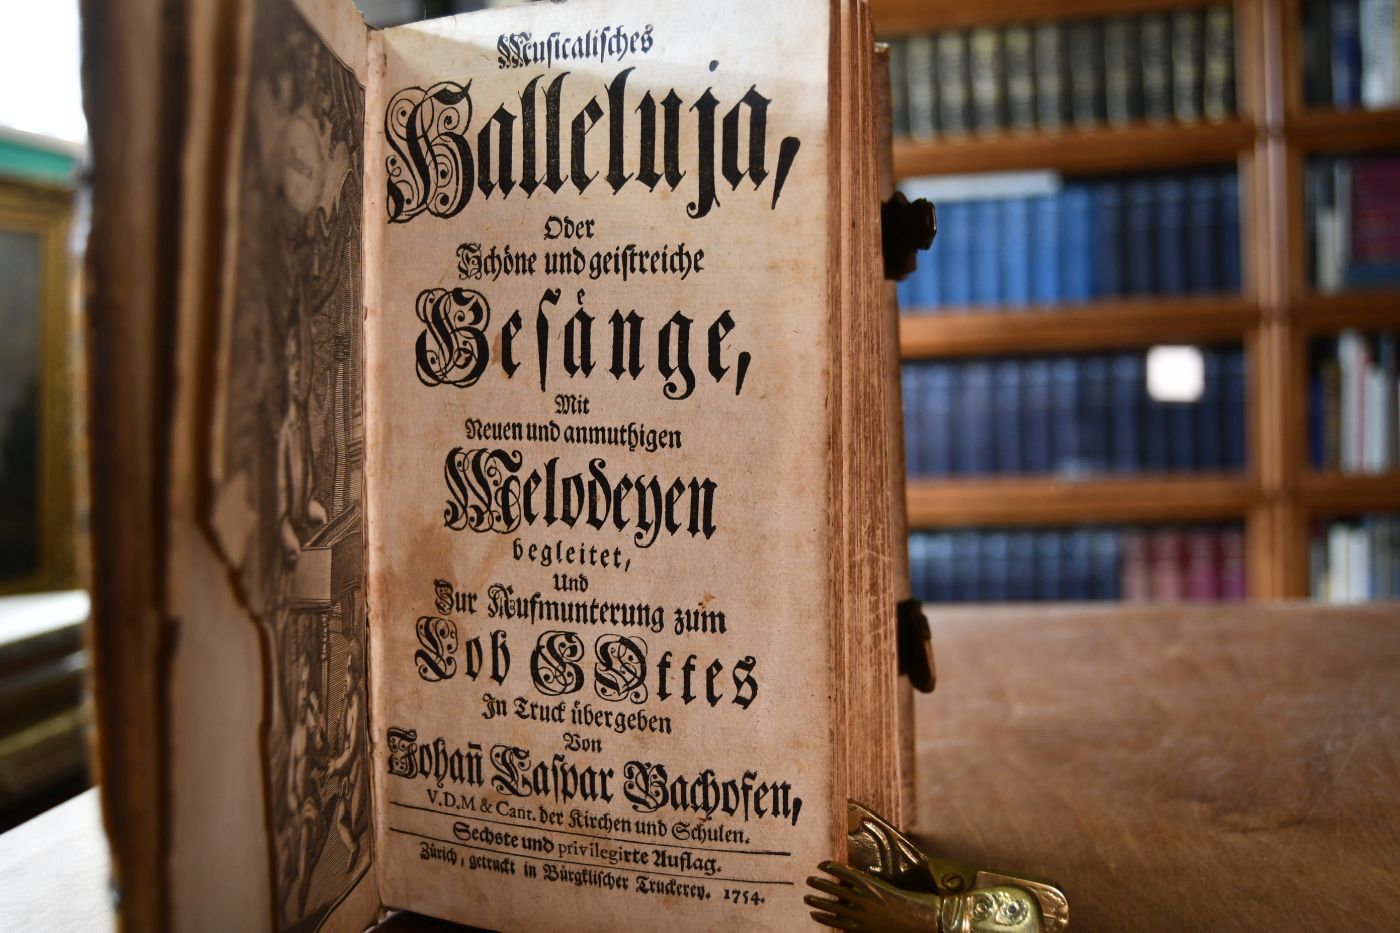 Musicalisches
Halleluja,
Oder
Schöne und geistreiche
Gesänge,
Mit
Neuen und anmuthigen
Melodeyen
begleitet,
Und
Zur Aufmunterung zum
Lob GOttes
In Truck übergeben
Von
Johañ Caspar Bachofen,
V.D.M & Cant. der Kirchen und Schulen.
Sechste und privilegirte Auflag.
Zürich, getruckt in Bürgklischer Truckerey. 1754.